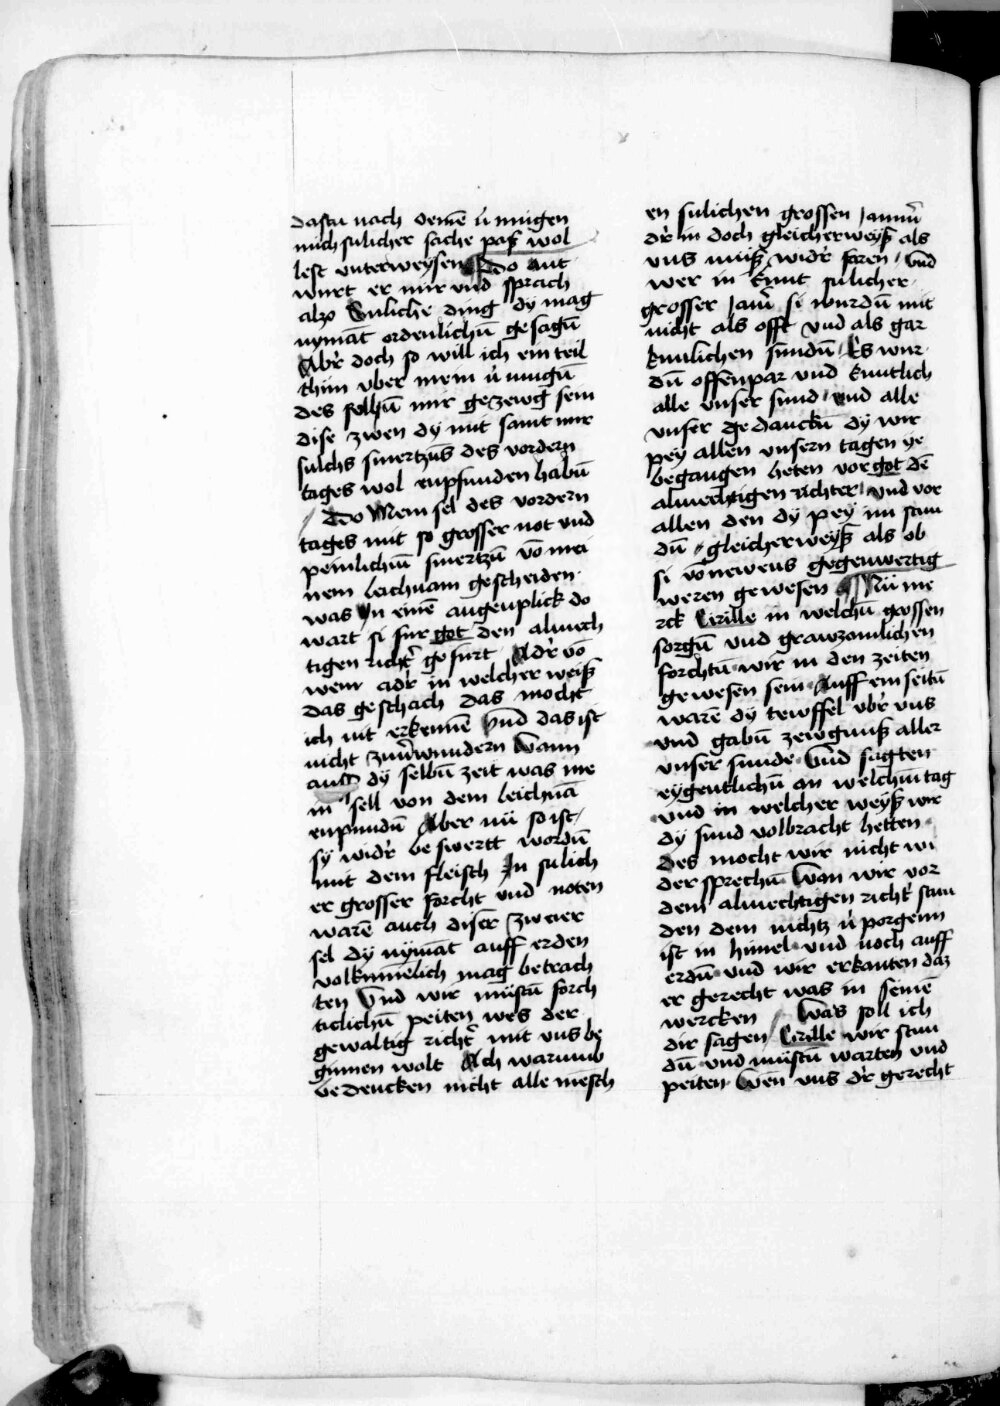 dastu nach deinē v̓mugen
mich sulicher sache paß wol
lest vnterweysen Do ant
wurt er mir vnd sprach
alzo Suliche ding dy mag
nymāt ordenlichū gesagū
Abr̓ doch so will ich ein teil
thun vber mein v̓mugū
des sellbū mir gezewg sein
dise zwen dy mit samt mir
sulchs smertzūs des vordern
tages wol enpfunden habū
Do Mein sel des vordern
tages mit so grosser not vnd
peinlichū smertzū vō mei
nem leichnam gescheiden
was In einē augenplick do
wart si fur got den almech
tigen richt̓ gefurt Adr̓ vō
wem adr̓ in welcher weiß
das geschach das mocht
ich nit erkennē Vnd das ist
nicht zuv̓wundern Wann
auff dy selbū zeit was me
in sell von dem leichnā
enpundū Aber nū so ist
sy widr̓ beswertt wordū
mit dem fleisch In sulich
er grosser forcht vnd noten
warē auch diser zweier
sel dy nymāt auff erden
volkumēlich mag betrach
ten Vnd wir mustū forch
ticlichū peiten wes der
gewaltig richt̓ mit vns be
ginnen wolt Ach warumb
bedencken nicht alle mēsch
en sulichen grossen Jamm̓
dr̓ in doch gleicherweyß als
vns muß widr̓ faren Vnd
wer in kunt sulicher
grosser Jam̓ si wurdū mit
nicht als offt vnd als gar
kunlichen sundū Es wur
dū offenpar vnd kuntlich
alle vnser sund vnd alle
vnser gedanckū dy wir
pey allen vnsern tagen ye
begangen heten vor got dē
almechtigen richter vnd vor
allen den dy pey im stun
dū gleicherweyß als ob
si vō newens gegenwertig
weren gewesen Nū me
rck Cirille in welchū grossen
sorgū vnd grawzamlichen
forchtū wir in den zeiten
gewesen sein Auff ein seitū
warē dy tewffel vbr̓ vns
vnd gabū zewgnuß aller
vnser sunde Vnd sagten
eygentlichū an welchū tag
vnd in welcher weyß wir
dy sund volbracht hetten
des mocht wir nicht wi
der sprechū Wan wir vor
dem almechtigen richt̓ stun
den dem nichtz v̓porgenn
ist in himel vnd noch auff
erdū vnd wir erkanten daz
er gerecht was in seinē
wercken Was soll ich
dir sagen Cirille wir stun
dū vnd mustū warten vnd
peiten Wen vns dr̓ gerecht